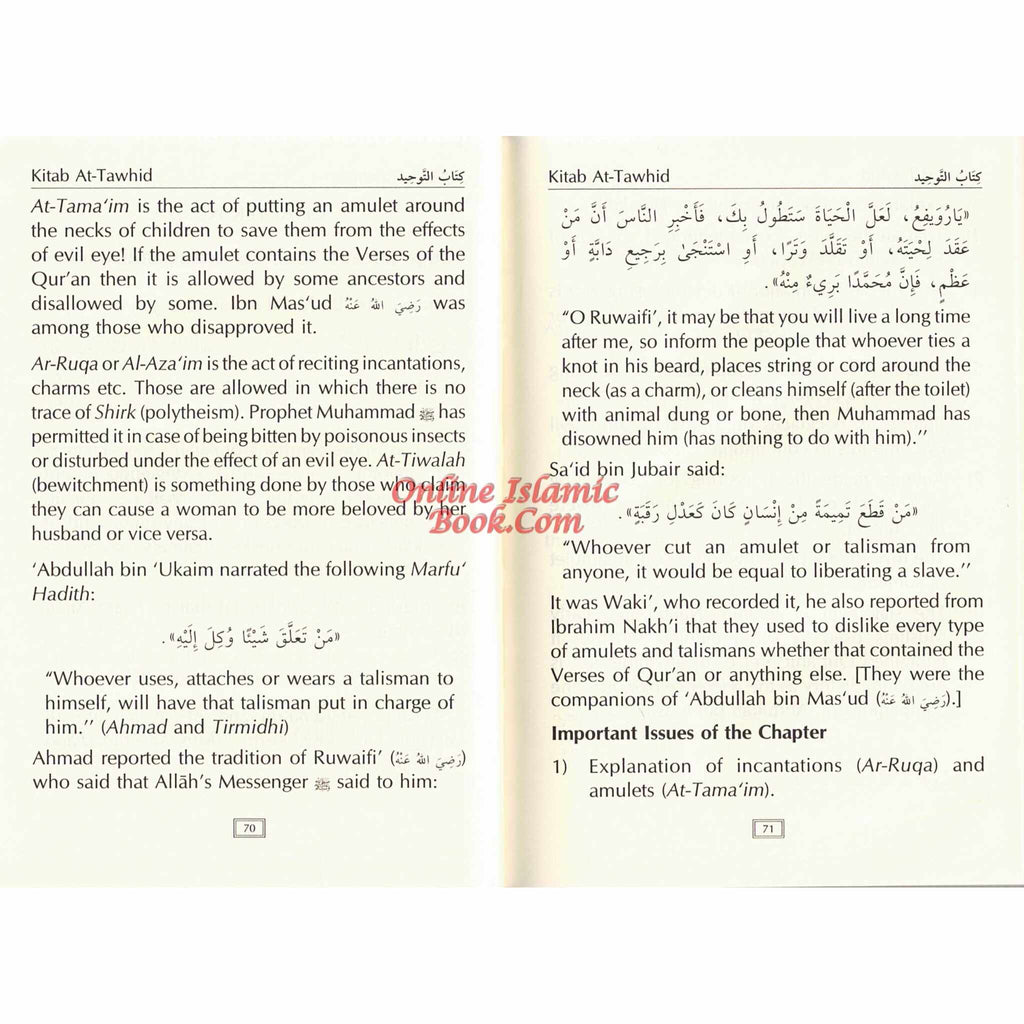 Kitab At-Tawhid كِتَابُ التَّوحِيد
At-Tama‘im is the act of putting an amulet around
the necks of children to save them from the effects
of evil eye! If the amulet contains the Verses of the
Qur’an then it is allowed by some ancestors and
disallowed by some. Ibn Mas‘ud رَضِيَ اللهُ عَنْهُ was
among those who disapproved it.
Ar-Ruqa or Al-Aza‘im is the act of reciting incantations,
charms etc. Those are allowed in which there is no
trace of Shirk (polytheism). Prophet Muhammad ﷺ has
permitted it in case of being bitten by poisonous insects
or disturbed under the effect of an evil eye. At-Tiwalah
(bewitchment) is something done by those who claim
they can cause a woman to be more beloved by her
husband or vice versa.
‘Abdullah bin ‘Ukaim narrated the following Marfu‘
Hadith:
«مَنْ تَعَلَّقَ شَيْئًا وُكِلَ إِلَيْهِ».
“Whoever uses, attaches or wears a talisman to
himself, will have that talisman put in charge of
him.” (Ahmad and Tirmidhi)
Ahmad reported the tradition of Ruwaifi’ (رَضِيَ اللهُ عَنْهُ)
who said that Allāh’s Messenger ﷺ said to him:
70
Kitab At-Tawhid كِتَابُ التَّوحِيد
«يَارُوَيفِعُ، لَعَلَّ الْحَيَاةَ سَتَطُولُ بِكَ، فَأَخْبِرِ النَّاسَ أَنَّ مَنْ
عَقَدَ لِحْيَتَهُ، أَوْ تَقَلَّدَ وَتَرًا، أَوِ اسْتَنْجَىٰ بِرَجِيعِ دَابَّةٍ أَوْ
عَظْمٍ، فَإِنَّ مُحَمَّدًا بَرِيءٌ مِنْهُ».
“O Ruwaifi’, it may be that you will live a long time
after me, so inform the people that whoever ties a
knot in his beard, places string or cord around the
neck (as a charm), or cleans himself (after the toilet)
with animal dung or bone, then Muhammad has
disowned him (has nothing to do with him).”
Sa‘id bin Jubair said:
«مَنْ قَطَعَ تَمِيمَةً مِنْ إِنْسَانٍ كَانَ كَعَدْلِ رَقَبَةٍ».
“Whoever cut an amulet or talisman from
anyone, it would be equal to liberating a slave.”
It was Waki’, who recorded it, he also reported from
Ibrahim Nakh’i that they used to dislike every type
of amulets and talismans whether that contained the
Verses of Qur’an or anything else. [They were the
companions of ‘Abdullah bin Mas‘ud (رَضِيَ اللهُ عَنْهُ).]
Important Issues of the Chapter
1) Explanation of incantations (Ar-Ruqa) and
amulets (At-Tama‘im).
71
Online Islamic
Book.Com